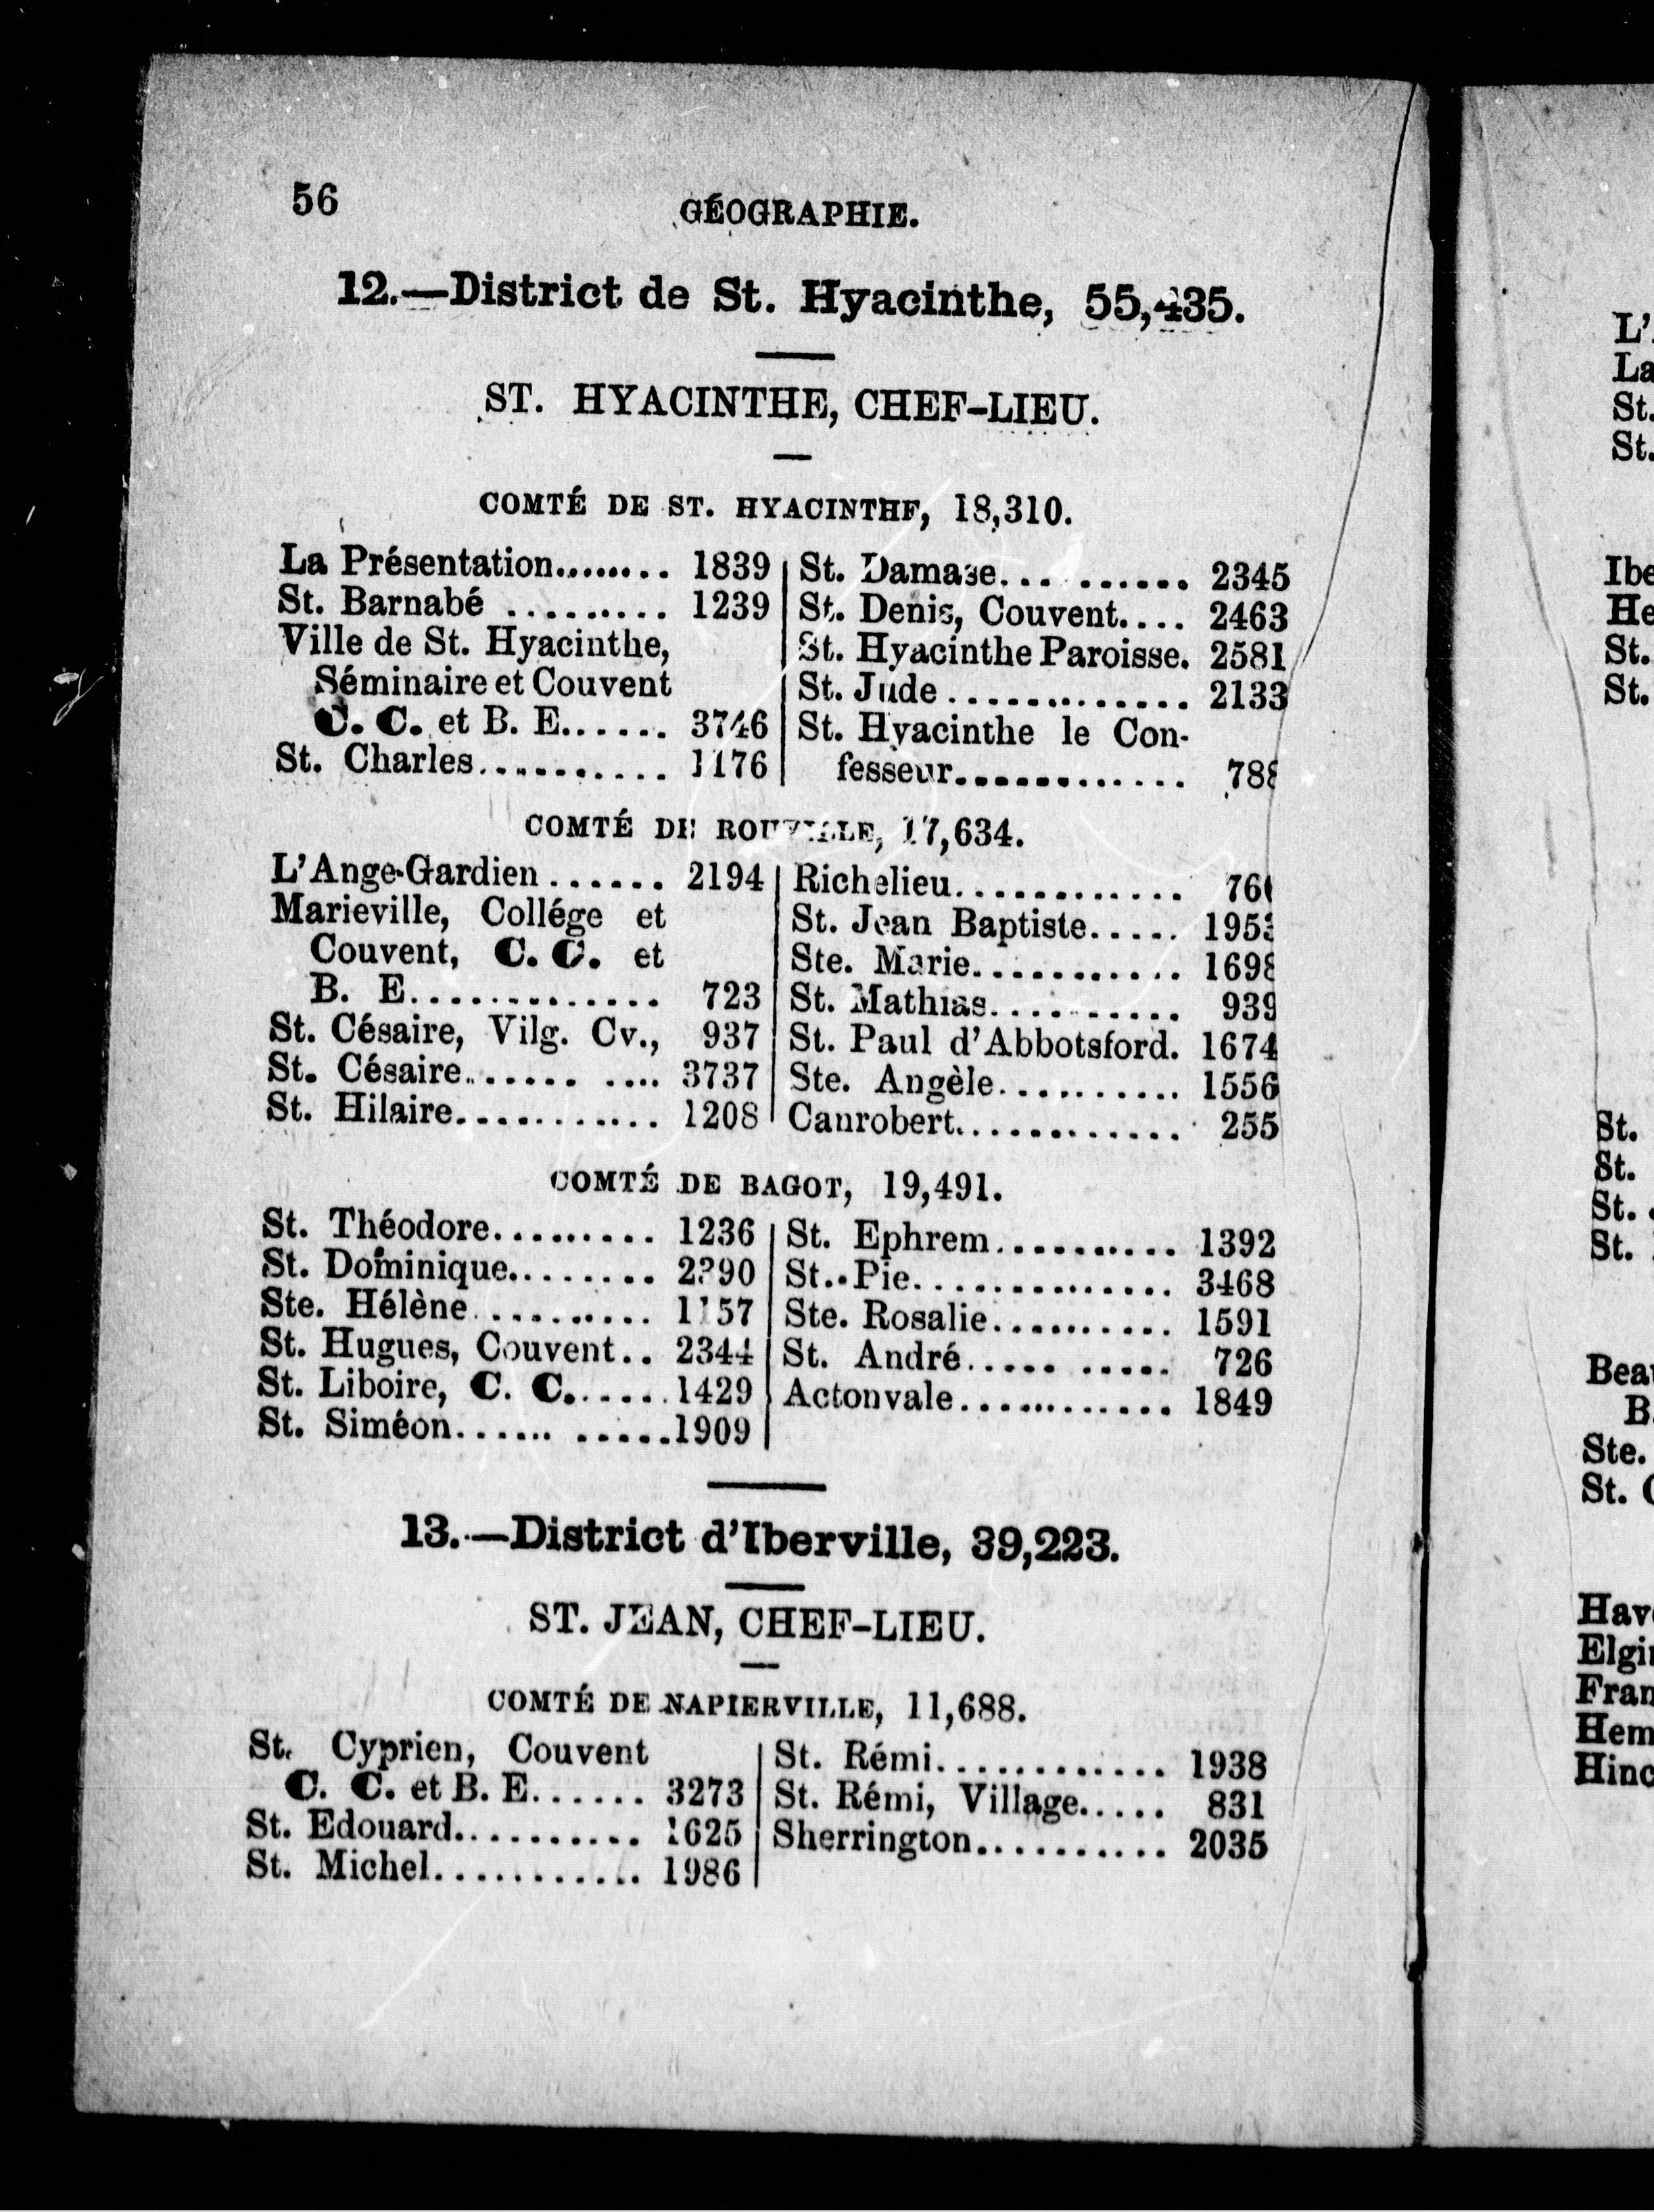 56
GÉOGRAPHIE.
12.—District de St. Hyacinthe, 55,435.
ST. HYACINTHE, CHEF-LIEU.
COMTÉ DE ST. HYACINTHE, 18,310.
La Présentation........ 1839
St. Barnabé .......... 1239
Ville de St. Hyacinthe,
Séminaire et Couvent
C. C. et B. E...... 3746
St. Charles........... 1176
St. Damase... ....... 2345
St. Denis, Couvent.... 2463
St. Hyacinthe Paroisse. 2581
St. Jude ............. 2133
St. Hyacinthe le Con-
fesseur............. 788
COMTÉ DE ROUVILLE, 17,634.
L'Ange-Gardien ...... 2194
Marieville, Collége et
Couvent, C. C. et
B. E.............. 723
St. Césaire, Vilg. Cv., 937
St. Césaire....... .... 3737
St. Hilaire........... 1208
Richelieu............
St. Jean Baptiste..... 1953
Ste. Marie........... 1698
St. Mathias.......... 939
St. Paul d'Abbotsford. 1674
Ste. Angèle.......... 1556
Canrobert............ 255
COMTÉ DE BAGOT, 19,491.
St. Théodore......... 1236
St. Dominique........
Ste. Hélène.......... 1157
St. Hugues, Couvent.. 2344
St. Liboire, C. C...... 1429
St. Siméon...... .....1909
St. Ephrem.......... 1392
St. Pie.............. 3468
Ste. Rosalie.......... 1591
St. André..... ..... 726
Actonvale............ 1849
13.—District d'Iberville, 39,223.
ST. JEAN, CHEF-LIEU.
COMTÉ DE NAPIERVILLE, 11,688.
St. Cyprien, Couvent
C. C. et B. E...... 3273
St. Edouard.......... 1625
St. Michel............ 1986
St. Rémi............ 1938
St. Rémi, Village..... 831
Sherrington.......... 2035
L'
La
St.
St.
Ibe
He
St.
St.
St.
St.
St.
St.
Beau
B.
Ste.
St.
Have
Elgin
Fran
Hem
Hinc